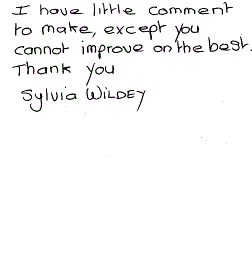 I have little comment
to make, except you
cannot improve on the best.
Thank you
Sylvia WILDEY